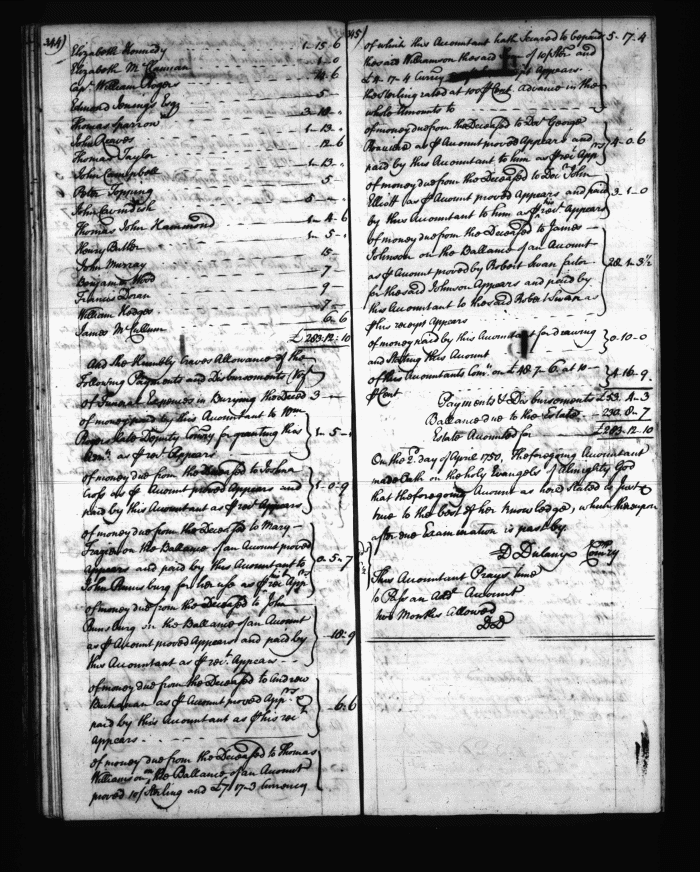 344)
Elizabeth Kennedy 1-15-6
Elizabeth McCannan 1-0
Capt William Rogers 4-6
Edmund Jenings Esqr 5
Thomas Sparrow 3-10-
John Reaves 1-13-
Thomas Taylor 12-6
John Campbell 1-13-
Peter Topping 5
John Cavindish 5 -
Thomas John Hammond 1-4-6
Henry Butler 1-5-
John Murray 15-
Benjamin Wood 7-
Francis Doran 9-
William Hodges 7-
James McCullum 6-6
£283-12-10
And she Humbly Craves Allowance of the
Following Payments and Disbursements (Vizt
of Funeral Expences in Burying the Deced 3 -
of money paid by this Accountant to Wm
Rogers late Deputy Comry for granting this 1-5-
as pr rect Appears
of money due from the Deceased to Joshua
Cross as pr Account proved Appears and 1-0-9
paid by this Accountant as pr rect Appears
of money due from the Deceased to Mary
Frazier on the Ballance of an Account proved
appears and paid by this Accountant to 0-5-7
John Bunsburg for her use as pr rect Apprs
of money due from the Deceased to John
Bunsburg on the Ballance of an Account
as pr Account proved Appears and paid by 18-9
this Accountant as pr rect Appears
of money due from the Deceased to Andrew
Buchanan as pr Account proved Apprs &
paid by this Accountant as pr his rect 6-6
Appears
of money due from the Deceased to Thomas
Williamson on the Ballance of an Account
proved 10/ Sterling and £7 17-3 Currency
345)
of which this Accountant hath Secured to be paid 5-17-4
the said Williamson the said of 10/ Ster and
£4-17-4 Curry Appears
the Sterling rated at 100 pr Cent. Advance in the
whole Amounts to
of money due from the Deceased to Dor George
as pr Account proved Appears and 17 4-0-6
paid by this Accountant to him as pr rect App
of money due from the Deceased to Dor John
Elliott as pr Account proved Appears and paid 3-1-0
by this Accountant to him as pr his rect Appears
of money due from the Deceased to James
Johnson on the Ballance of an Account
as pr Account proved by Robert Swan factor 28-4-3½
for the said Johnson Appears and paid by
this Accountant to the said Robert Swan as
pr his receipt Appears
of money paid by this Accountant for drawing 0-10-0
and Stating this Account
of this Accountants Comn on £48-7-6 at 10 4-16-9
pr Cent
Payments & Disbursements £53-4-3
Ballance due to the Estate 230-8-7
Estate Accounted for £283-12-10
On the 2d day of April 1750, The foregoing Accountant
made Oath on the holy Evangels of Almighty God
that the foregoing Account as here Stated is Just &
true to the best of her Knowledge, which thereupon
after due Examination is past by
D Dulany Comry
This Accountant Prays time
to Pass an Addl Account
two Months Allowed
DD